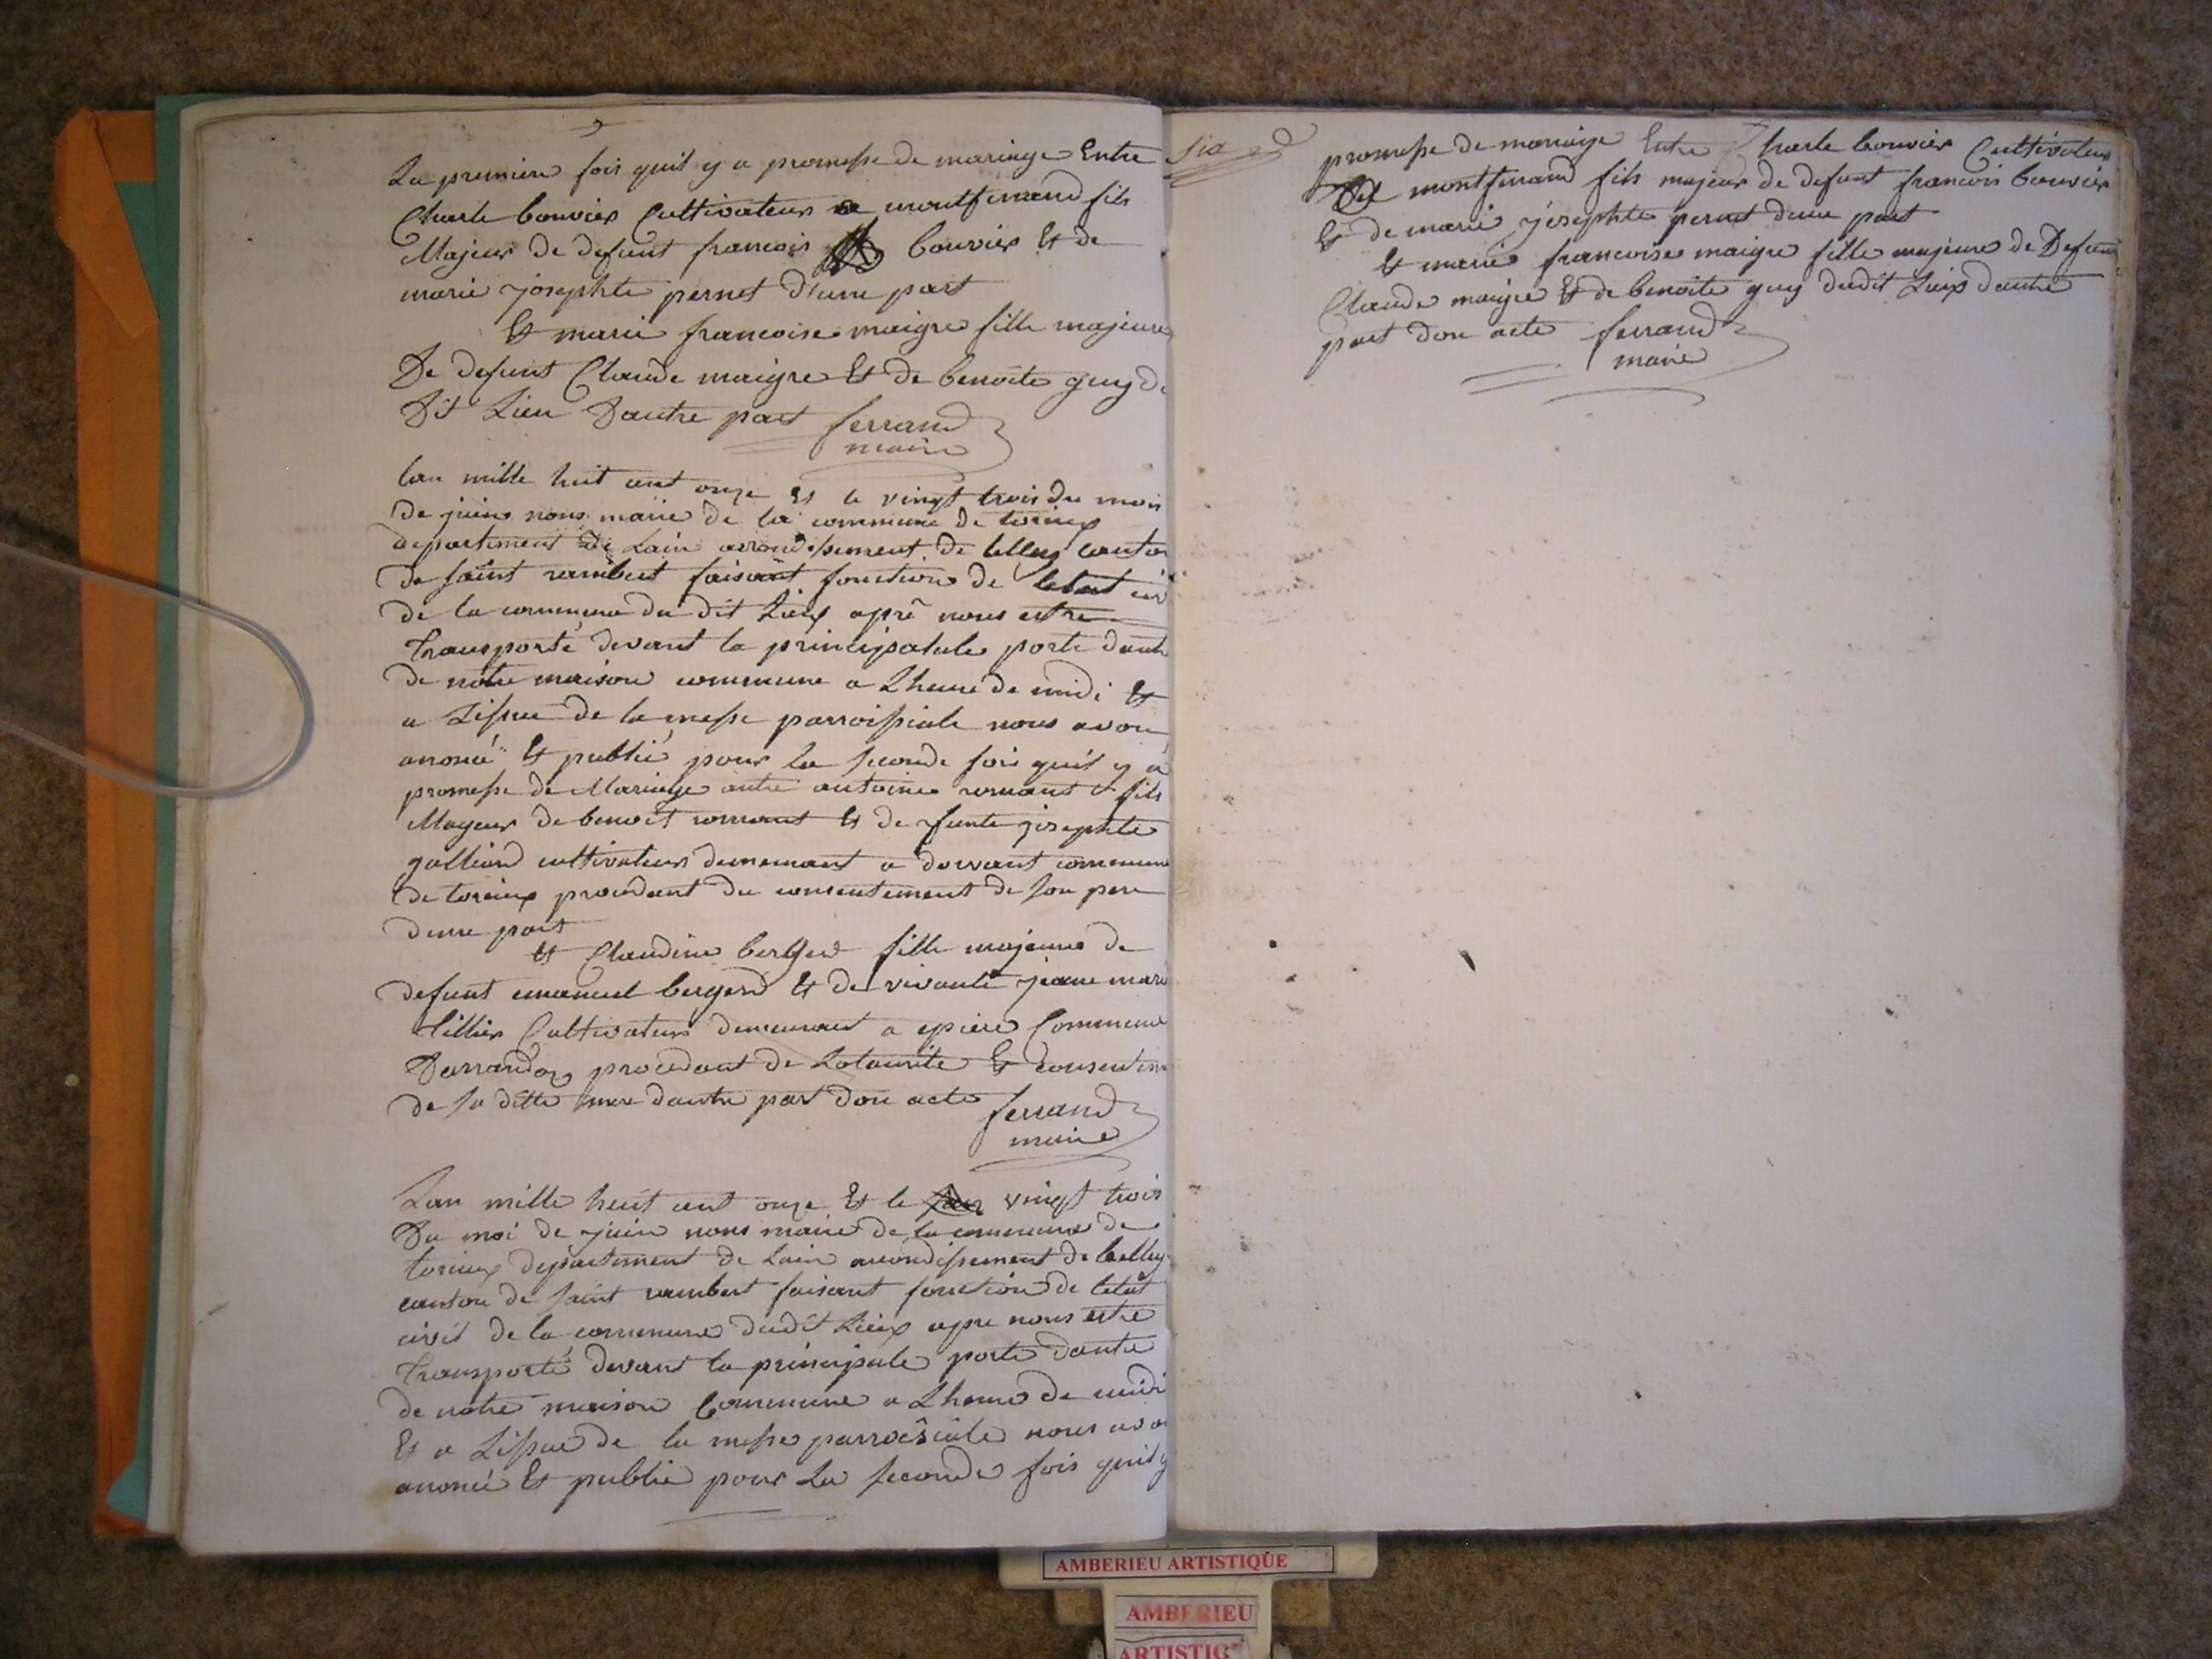 La premiere fois quil y a promesse de mariage Entre
Charle bouvier Cultivateur a montferrand fils
Majeur de defunt francois bouvier Et de
marie josephte pernet d'une part
Et marie francoise maigre fille majeure
De defunt Claude maigre Et de benoite guy du
Dit Lieu Dautre part ferrand
maire
lan mille huit cent onze Et le vingt trois du mois
de juin nous maire de la commune de torcieux
departement de Lain arrondissement de belley canton
de saint rambert faisant fonction de letat civ
de la commune du dit Lieux aprê nous estre
Transporté devant la principalale porte dantré
de notre maison commune a Lheure de midi Et
a Lissue de la messe parroissiale nous avon
anoncé Et publié pour la seconde fois quil y a
promesse de Mariage antre antoine romant fils
Mageur de benoit romant Et de funte josephte
gallian cultivateur demeurant a dorvant commune
de torcieux procedant du consentement de son pere
dune part
Et Claudine berger fille majeure de
defunt emanuel bergerd Et de vivante jeane marie
tillier Cultivateur demeurant a epiere Commune
Darrandas procedant de Lotaurite Et consenteme
de sa ditte mere dautre part don acte ferrand
maire
Lan mille huit cent onze Et le vingt trois
Du moi de juin nous maire de la commune de
torcieux departement de Lain arrondissement de belley
canton de saint rambert faisant fonction de letat
civil de la commune dudit Lieux apre nous estre
Transporté devant la principale porte dantre
de notre maison Commune a Lheure de midi
Et a Lissue de la messe parroêsiale nous avon
anoncé Et publié pour La seconde fois quil y
promesse de mariage Entre Charle bouvier Cultivateur
De montferrand fils majeur de defunt francois bouvier
Et de marie josephte pernet dune part
Et marie francoise maigre fille majeure de Defunt
Claude maigre Et de benoite guy dudit Lieux dautre
part don acte ferrand
maire
AMBERIEU ARTISTIQUE
AMBERIEU
ARTISTIQ